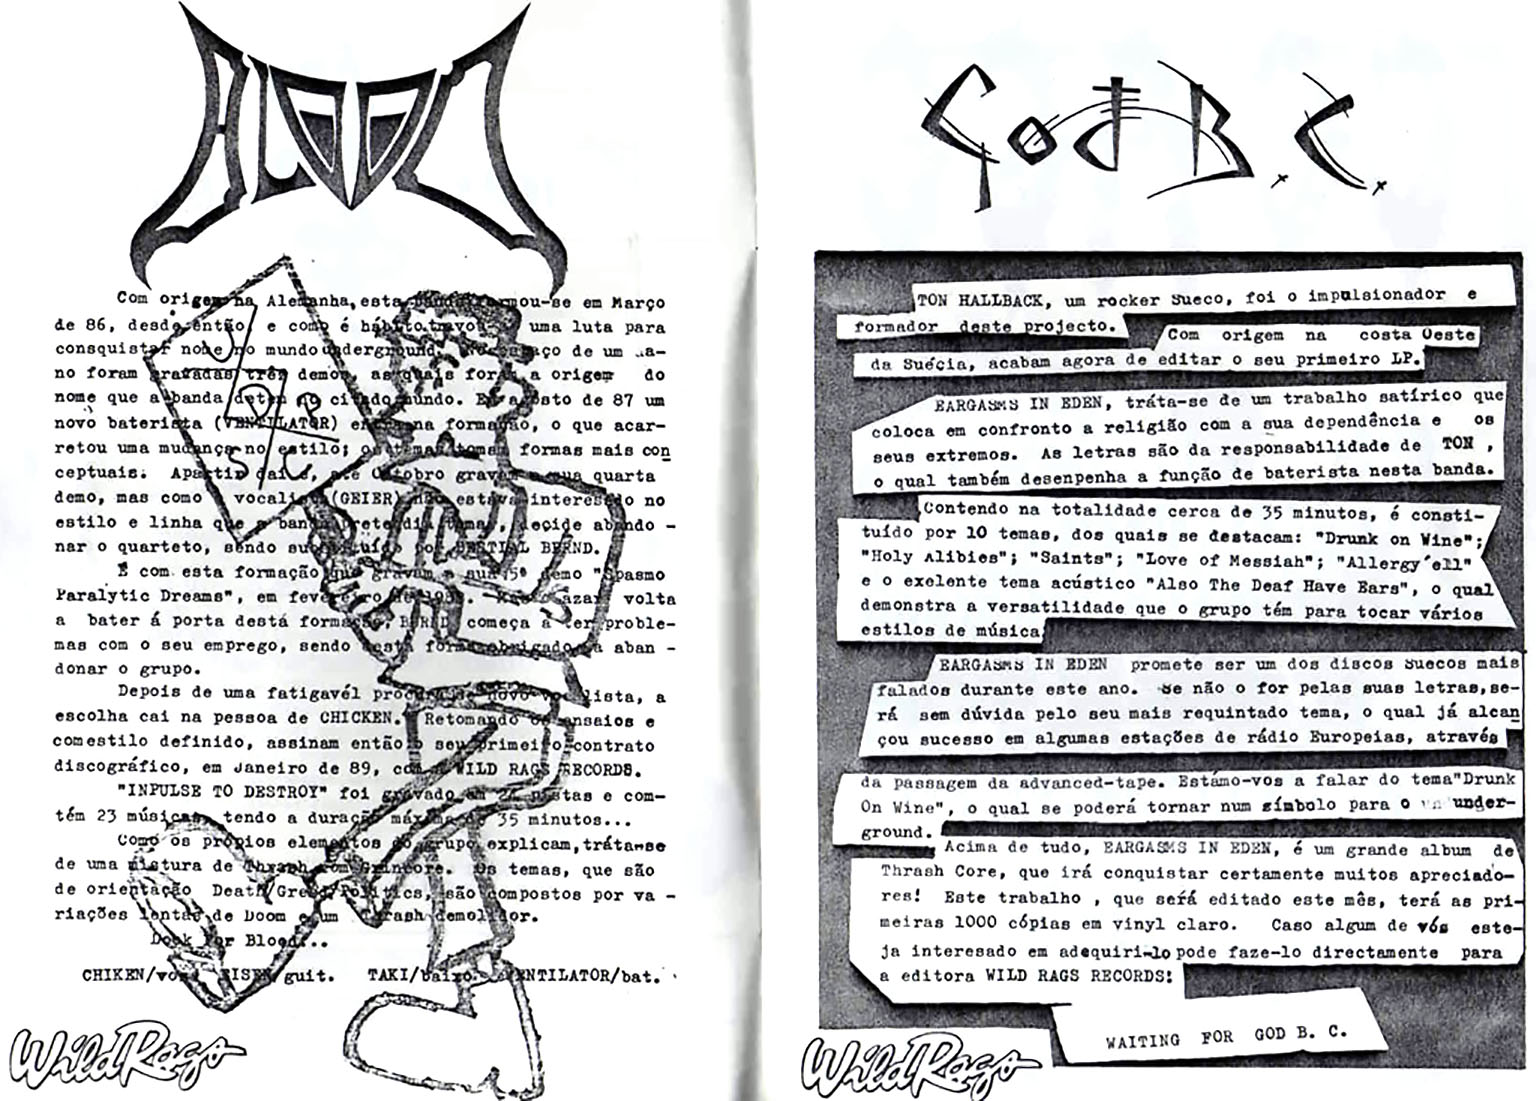 BLOOD
Com origem na Alemanha, esta banda formou-se em Março
de 86, desde então, e como é hábito, travou uma luta para
consquistar nome no mundo underground. No espaço de um a-
no foram gravadas três demos, as quais foram a origem do
nome que a banda detem no citado mundo. Em agosto de 87 um
novo baterista (VENTILATOR) entra na formação, o que acar-
retou uma mudança no estilo; os temas tomam formas mais con
ceptuais. Apartir daí, até Outobro gravam a sua quarta
demo, mas como o vocalista (GEIER) não estava interessado no
estilo e linha que a banda pretendia tomar, decide abando -
nar o quarteto, sendo substituído por BESTIAL BERND.
É com esta formação que gravam a sua 5ª demo "Spasmo
Paralytic Dreams", em fevereiro de 1988. azar volta
a bater á porta destá formação, BERND começa a ter proble-
mas com o seu emprego, sendo desta forma obrigado a aban -
donar o grupo.
Depois de uma fatigavél procura de novo vocalista, a
escolha cai na pessoa de CHICKEN. Retomando os ensaios e
comestilo definido, assinam então o seu primeiro contrato
discográfico, em Janeiro de 89, com a WILD RAGS RECORDS.
"INPULSE TO DESTROY" foi gravado em 24 pistas e com-
têm 23 músicas, tendo a duração máxima de 35 minutos...
Como os própios elementos do grupo explicam, tráta-se
de uma mistura de Thrash com Grincore. Os temas, que são
de orientação Death/Greed/Politics, são compostos por va -
riações lentas de Doom e um Thrash demolidor.
Dook For Blood...
CHIKEN/voz EISEN/guit. TAKI/baixo. VENTILATOR/bat.
Wild Rags
God B.C.
TON HALLBACK, um rocker Sueco, foi o impulsionador e
formador deste projecto.
Com origem na costa Oeste
da Suécia, acabam agora de editar o seu primeiro LP.
EARGASMS IN EDEN, tráta-se de um trabalho satírico que
coloca em confronto a religião com a sua dependência e os
seus extremos. As letras são da responsabilidade de TON ,
o qual também desenpenha a função de baterista nesta banda.
Contendo na totalidade cerca de 35 minutos, é consti-
tuído por 10 temas, dos quais se destacam: "Drunk on Wine";
"Holy Alibies"; "Saints"; "Love of Messiah"; "Allergy'ell"
e o exelente tema acústico "Also The Deaf Have Ears", o qual
demonstra a versatilidade que o grupo têm para tocar vários
estilos de música
EARGASMS IN EDEN promete ser um dos discos Suecos mais
falados durante este ano. Se não o for pelas suas letras, se-
rá sem dúvida pelo seu mais requintado tema, o qual já alcan
çou sucesso em algumas estações de rádio Europeias, através
da passagem da advanced-tape. Estámo-vos a falar do tema"Drunk
On Wine", o qual se poderá tornar num símbolo para o under-
ground.
Acima de tudo, EARGASMS IN EDEN, é um grande album de
Thrash Core, que irá conquistar certamente muitos apreciado-
res! Este trabalho , que será editado este mês, terá as pri-
meiras 1000 cópias em vinyl claro. Caso algum de vós este-
ja interesado em adequiri-lo pode faze-lo directamente para
a editora WILD RAGS RECORDS!
WAITING FOR GOD B. C.
Wild Rags